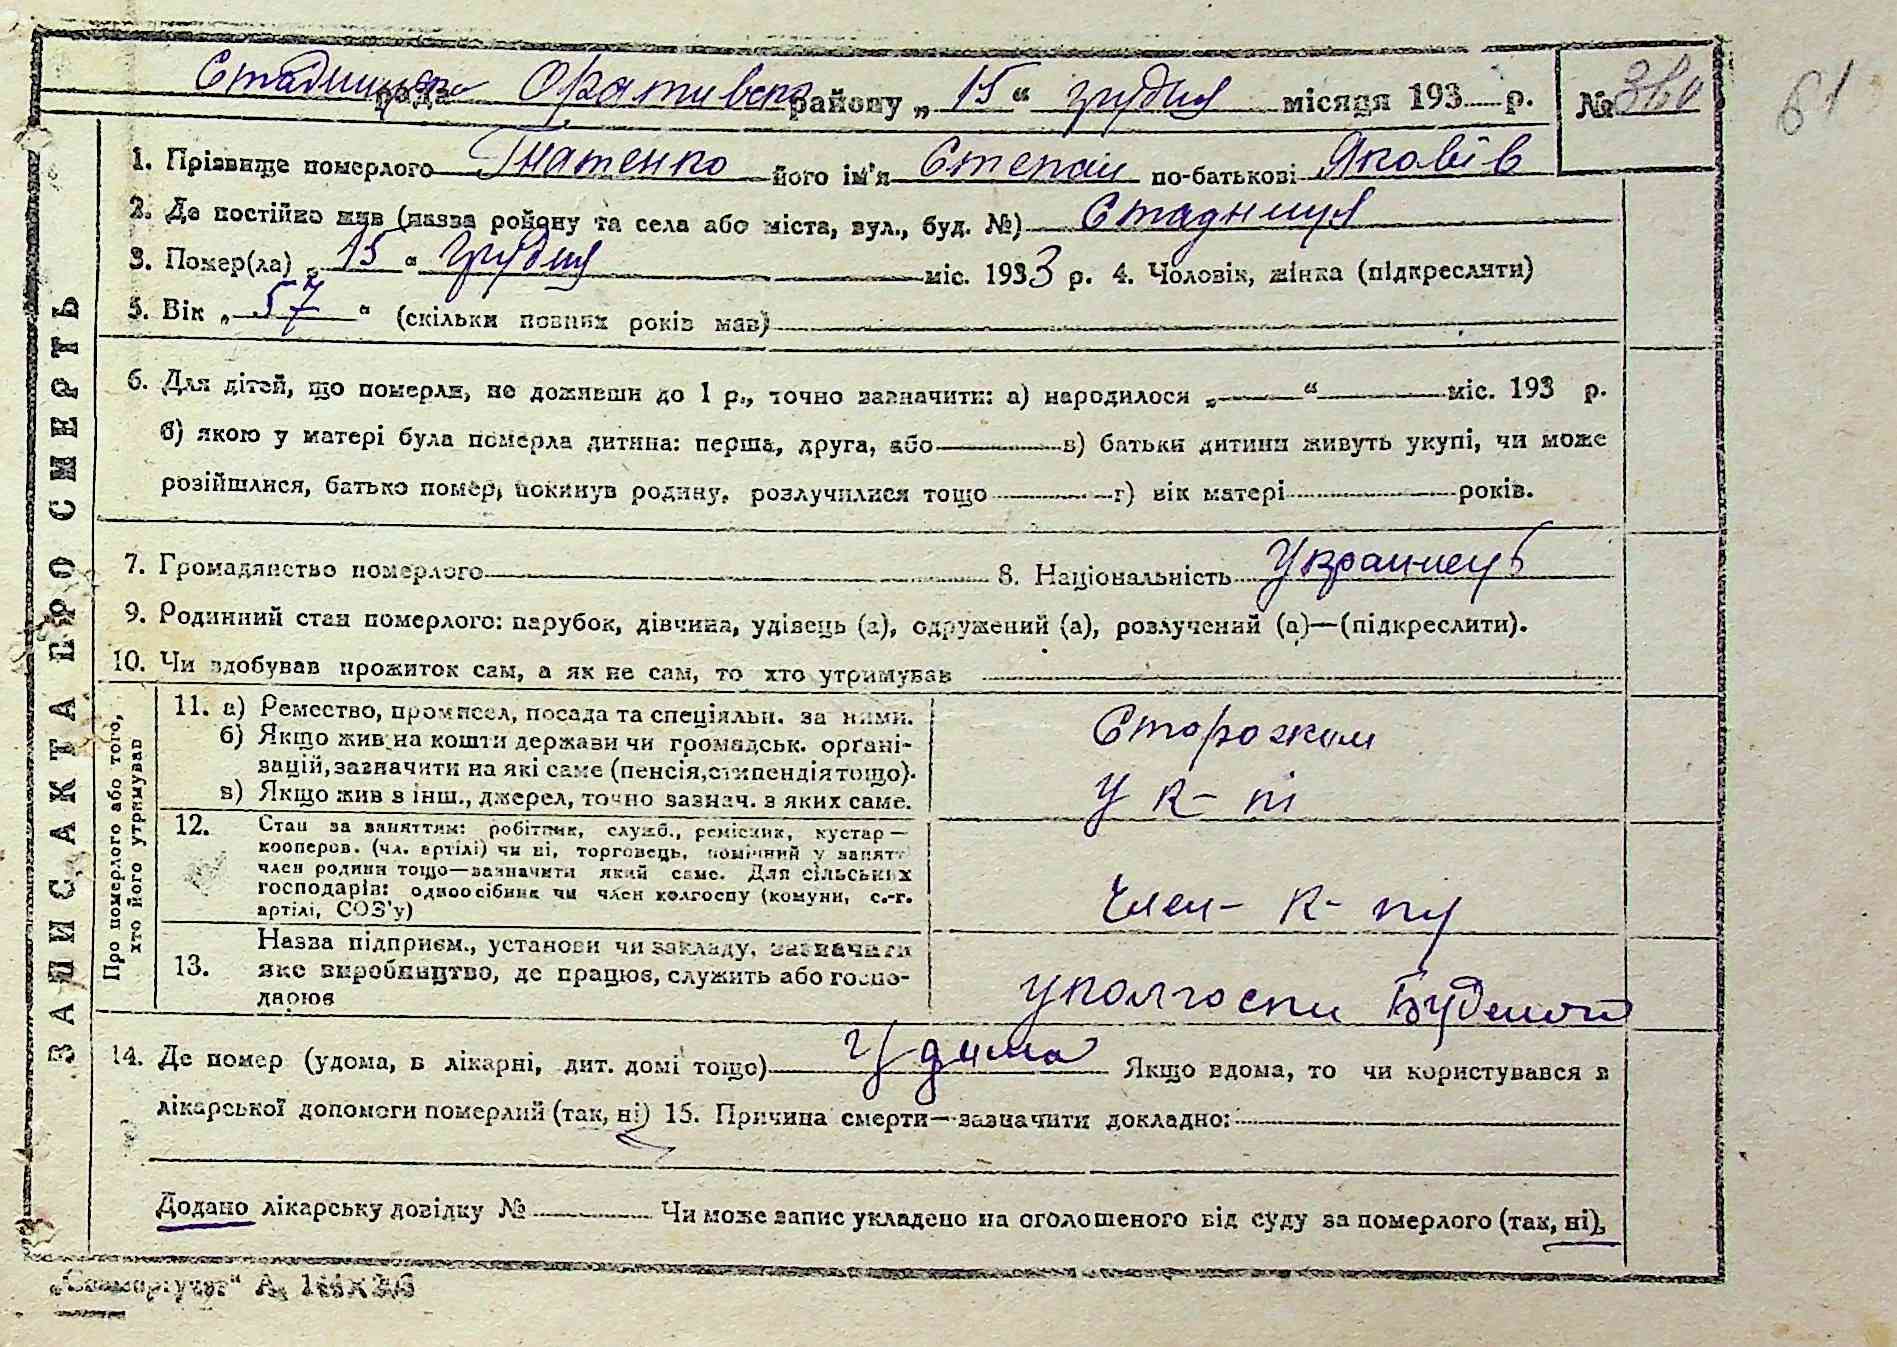 рада Оративськ району „ 15 “ грудня місяця 193 р. № 61
1. Прізвище померлого Гнатенко його ім'я Степан по-батькові Яковів
2. Де постійно жив (назва ройону та села або міста, вул., буд. №) Стадниця
3. Помер(ла) „ 15 “ грудня міс. 1933 р. 4. Чоловік, жінка (підкреслити)
5. Вік „ 57 “ (скільки повних років мав)
6. Для дітей, що померли, не доживши до 1 р., точно зазначити: а) народилося „ “ міс. 193 р.
б) якою у матері була померла дитина: перша, друга, або в) батьки дитини живуть укупі, чи може
розійшлися, батько помер, покинув родину, розлучилися тощо г) вік матері років.
7. Громадянство померлого 8. Національність Українець
9. Родинний стан померлого: парубок, дівчина, удівець (а), одружений (а), розлучений (а)—(підкреслити).
10. Чи здобував прожиток сам, а як не сам, то хто утримував
ЗАПИС АКТА ПРО СМЕРТЬ
Про померлого або того,
хто його утримував
11. а) Ремество, промисел, посада та спеціяльн. за ними.
б) Якщо жив на кошти держави чи громадськ. орґані-
зацій, зазначити на які саме (пенсія, стипендія тощо).
в) Якщо жив з інш., джерел, точно зазнач. з яких саме.
Сторожом
у к-пі
12. Стан за заняттям: робітник, служб., ремісник, кустар—
кооперов. (чл. артілі) чи ні, торговець, помічний у занятті
член родини тощо—зазначити який саме. Для сільських
господарів: одноосібник чи член колгоспу (комуни, с.-г.
артілі, СОЗ'у)
член- к-пу
13. Назва підприєм., установи чи закладу, зазначити
яке виробництво, де працює, служить або госпо-
дарює
уколгоспи
14. Де помер (удома, в лікарні, дит. домі тощо) удима Якщо вдома, то чи користувався з
лікарської допомоги померлий (так, ні) 15. Причина смерти—зазначити докладно:
Додано лікарську довідку № Чи може запис укладено на оголошеного від суду за померлого (так, ні),